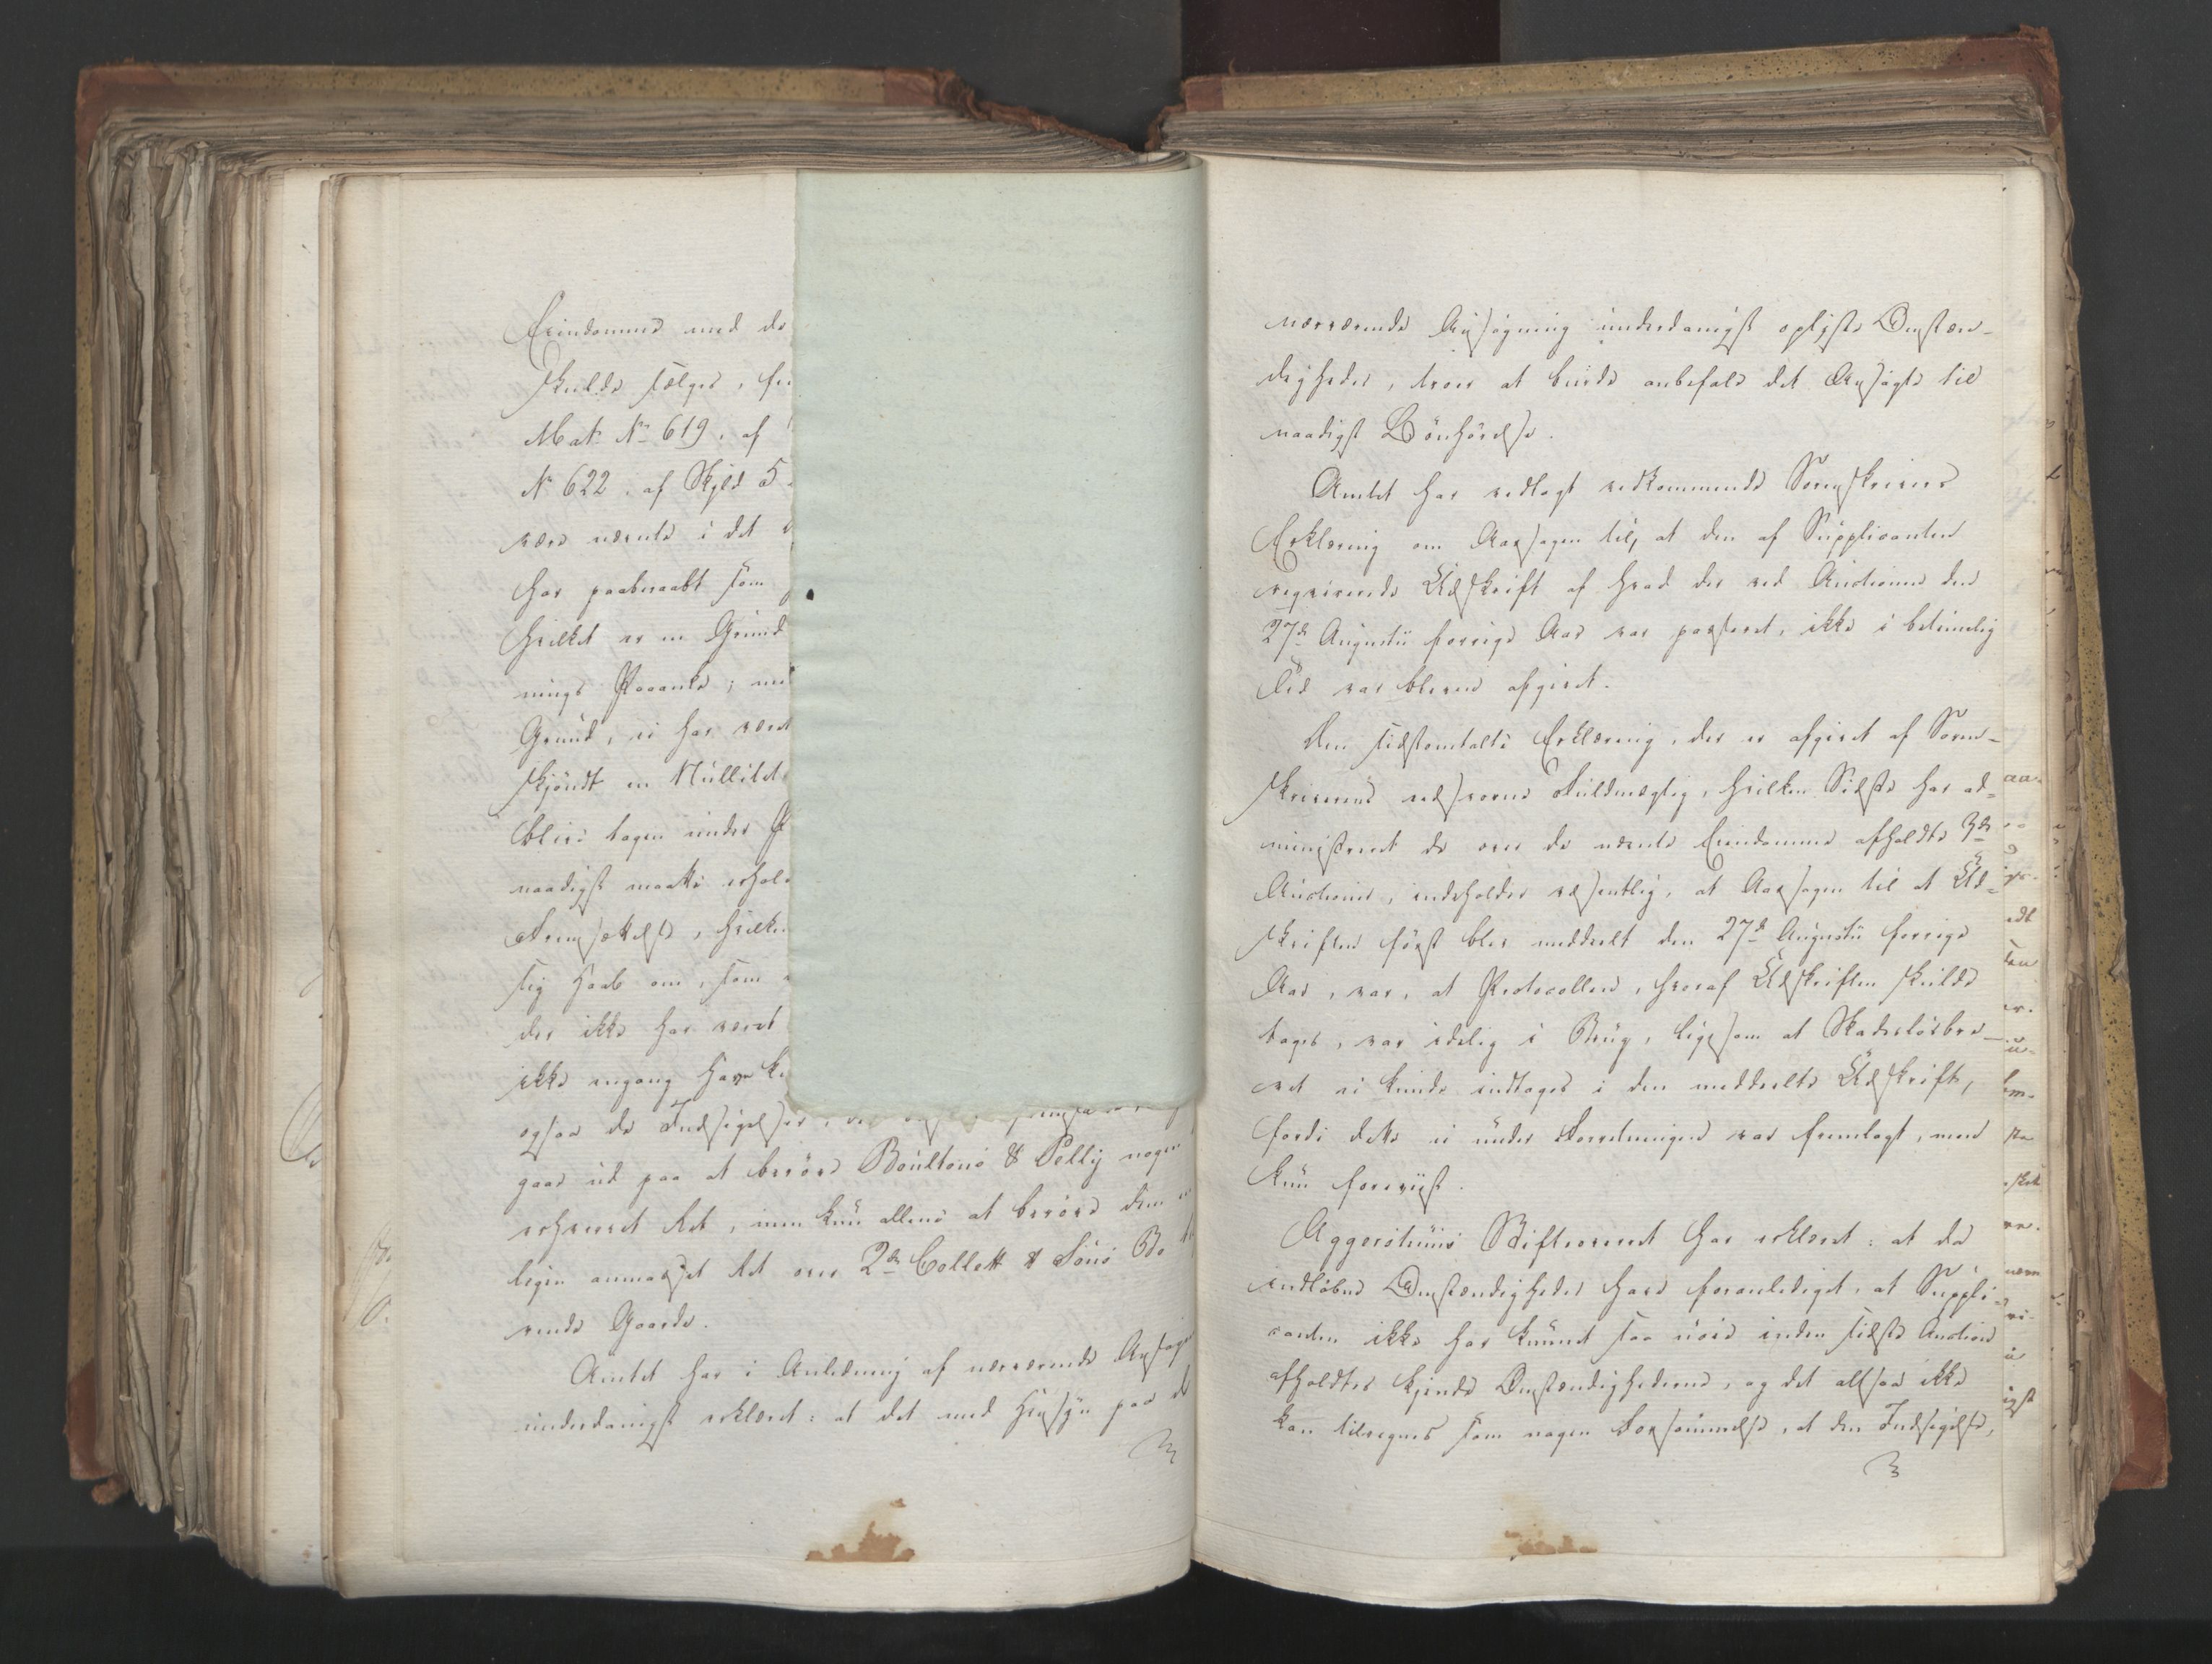 Eiendomme med de
skulde sælges, fr
Mat. No 619, af
No 622, af Skyld 5
være nævnte i det
har paaberaabt som
hvilket er en Grund
nings Paaanke; me
Grund, ei har været
skjöndt en Nullitets
blive tagen under P
naadigst maatte erhol
Fremsættelse, hvilken
sig Haab om, som
der ikke har været
ikke engang have ku
ogsaa de Indsigelser,
gaae ud paa at beröve Boultons & Pelly nogen
erhvervet Ret, men kun allene at beröve dem en
ligen anmasset Ret over 2de Collett & Söns Bo
rende Gaarde.
Amtet har i Anledning af nærværende Ansögn
underdanigst erklæret: at det med Hensyn paa de
nærværende Ansögning underdanigst oplyste Omstæn-
digheder, troer at burde anbefale det Ansögte til
naadigst Bönhörelse.
Amtet har vedlagt vedkommende Sorenskrivers
Erklæring om Aarsagen til, at den af Supplicanten
reqvirerede Udskrift af hvad der ved Auctionen den
27de Augustii forrige Aar var passeret, ikke i betimelig
Tid var bleven afgivet.
Den sidstomtalte Erklæring, der er afgivet af Soren-
skriverens edsvorne Fuldmægtig, hvilken Sidste har ad-
ministreret de over de nævnte Eiendomme afholdte 3de
Auctioner, indeholder væsentlig, at Aarsagen til at Ud-
skriften först blev meddeelt den 27de Augustii forrige
Aar, var, at Protocollen, hvoraf Udskriften skulde
tages, var idelig i Brug, ligesom at Skadeslösbre-
vet ei kunde indtages i den meddeelte Udskrift,
fordi dette ei under Forretningen var fremlagt, men
kun foreviist.
Aggershuus Stiftsoverret har erklæret: at da
indløbne Omstændigheder have foranlediget, at Suppli-
canten ikke har kunnet faae övet inden sidste Auction
afholdtes kjende Omstændighederne, og det altsaa ikke
kan tilregnes som nogen Forsömmelse, at den Indsigelse,